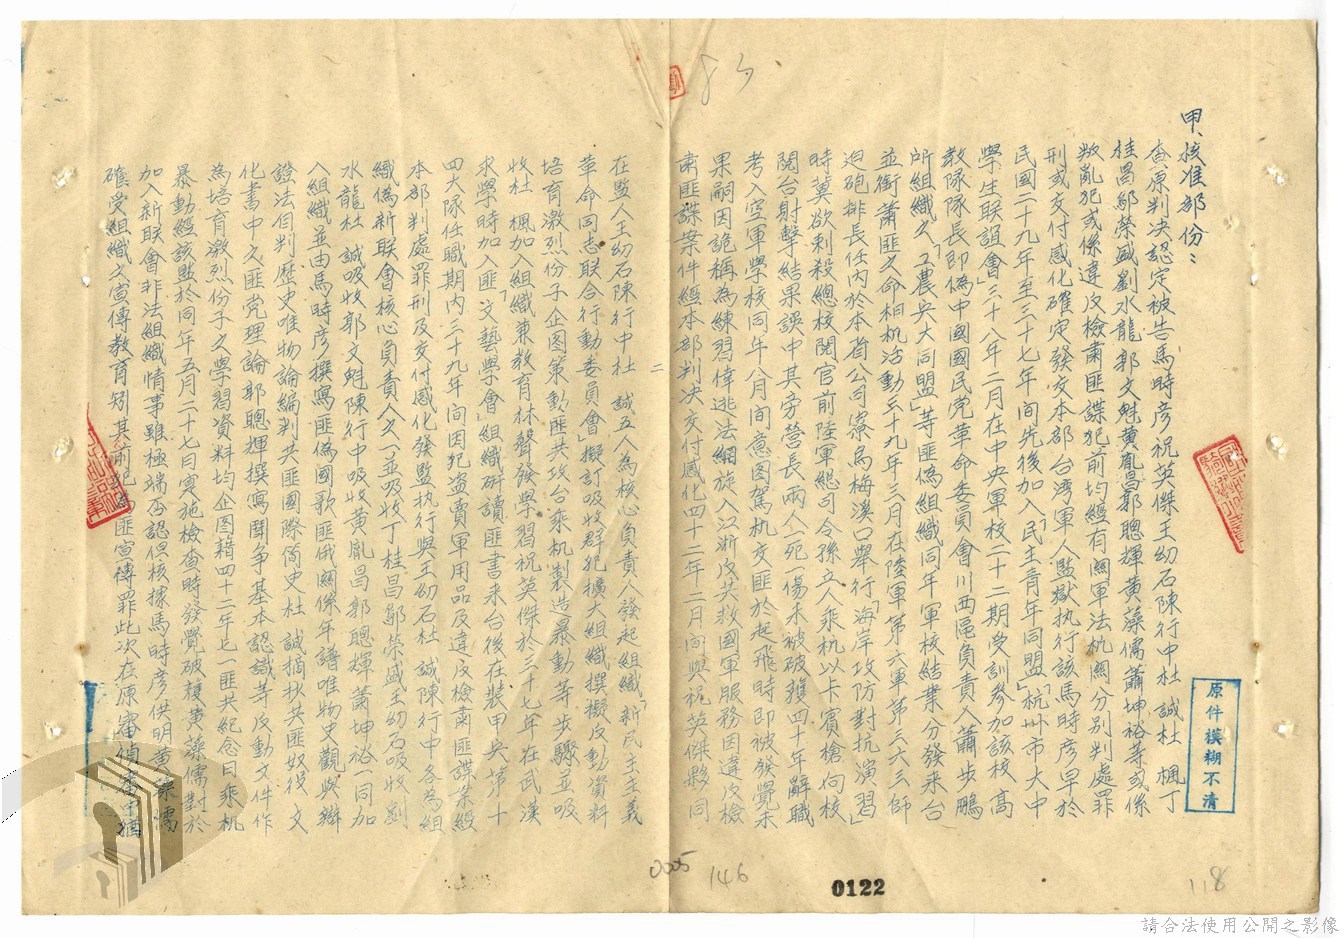 甲、核准部份：
查原判決認定被告馬時彥祝英傑王幼石陳行中杜　誠杜　楓丁
桂昌鄔榮盛劉水龍郭文魁黃胤昌郭聰輝黃藻儒蕭坤裕等或係
叛亂犯或係違反檢肅匪諜犯前均經有關軍法机關分別判處罪
刑或交付感化確定發交本部台湾軍人監獄执行該馬時彥早於
民國二十九年至三十七年间先後加入「民主青年同盟」「杭州市大中
學生联誼會」三十八年二月在中央軍校二十二期受訓參加該校高
教隊隊長即偽中國國民党革命委員會川西區負責人蕭步鵬
所組織之「工農兵大同盟」等匪偽組織同年軍校結業分發来台
並銜蕭匪之命相机活動三十九年三月在陸軍第六軍第三六三師
迫砲排長任內於本省公司寮烏梅溪口舉行「海岸攻防對抗演習」
時冀欲刺殺總校閱官前陸軍總司令孫立人乘机以卡賓槍向校
閱台射擊結果誤中其旁營長兩人一死一傷未被破獲四十年辭職
考入空軍學校同年八月间意图駕机交匪於起飛時即被發覺未
果嗣因詭稱為練習倖逃法網旋入江浙反共救國軍服務因違反檢
肅匪諜案件經本部判决交付感化四十二年二月间與祝英傑夥同
二
在監人王幼石陳行中杜　誠五人為核心負責人發起組織「新民主主義
革命同志联合行動委員會」擬訂吸收群犯擴大組織撰擬反動資料
培育激烈份子企图策動匪共攻台乘机製造暴動等步驟並吸
收杜　楓加入組織兼教育林聲發學習祝英傑於三十七年在武漢
求學時加入匪「文藝學會」組織研讀匪書来台後在裝甲兵第十
四大隊任職期內三十九年间因犯盜賣軍用品及違反檢肅匪諜案經
本部判處罪刑及交付感化發監执行與王幼石杜　誠陳行中各為組
織偽新联會核心負責人之一並吸收丁桂昌鄔榮盛王幼石吸收劉
水龍杜　誠吸收郭文魁陳行中吸收黃胤昌郭聰輝蕭坤裕一同加
入組織並由馬時彥撰寫匪偽國歌匪俄關係年譜唯物史觀與辯
證法自判歷史唯物論編判共匪國際简史杜　誠摘抄共匪奴役　文
化書中之匪党理論郭聰輝撰寫鬪争基本認識等反動文件作
為培育激烈份子之學習資料均企图藉四十二年七一匪共紀念日乘机
暴動經該監於同年五月二十七日实施檢查時發覺破獲黃藻儒對於
加入新联會非法組織情事雖極端否認但核據馬時彥供明黃藻儒
確受組織之宣傳教育矧其前犯匪宣傳罪此次在原審偵查中猶
原件模糊不清
0005
146
0122
118
請合法使用公開之影像